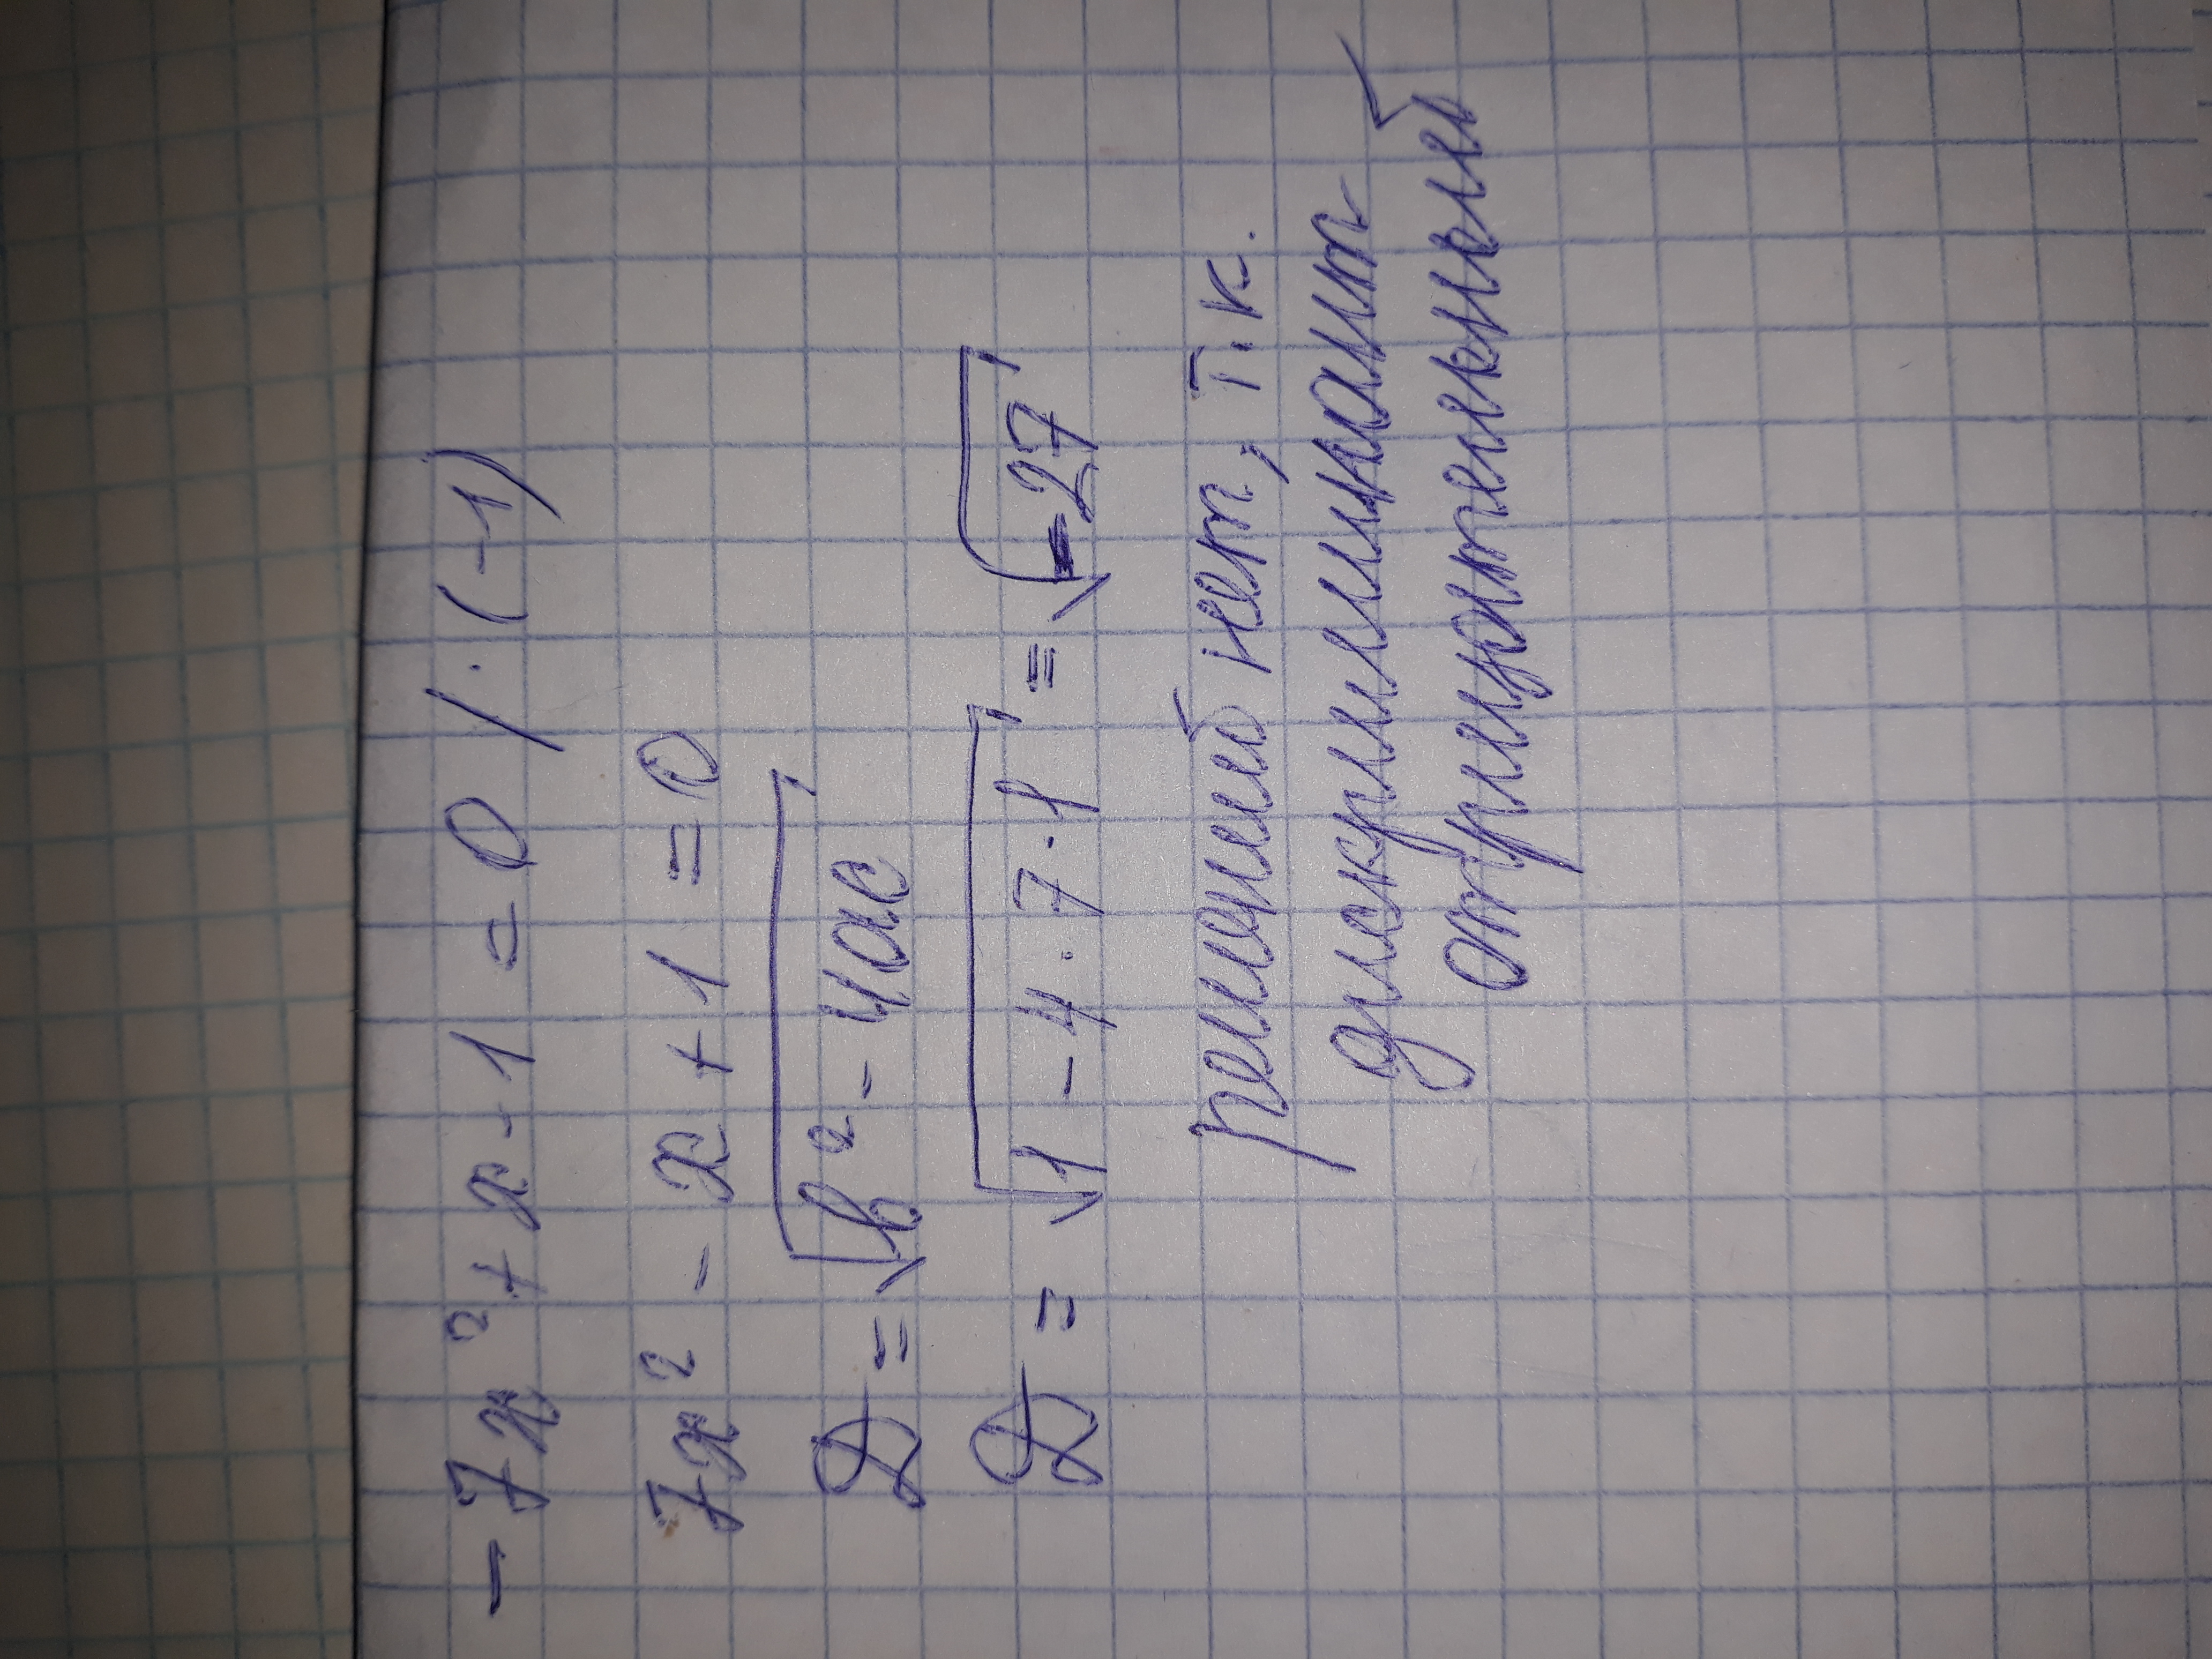 -7x² + x - 1 = 0 / · (-1)
7x² - x + 1 = 0
D = √b² - 4ac
D = √1 - 4 · 7 · 1 = √-27
решений нет, т.к.
дискриминант
отрицательный